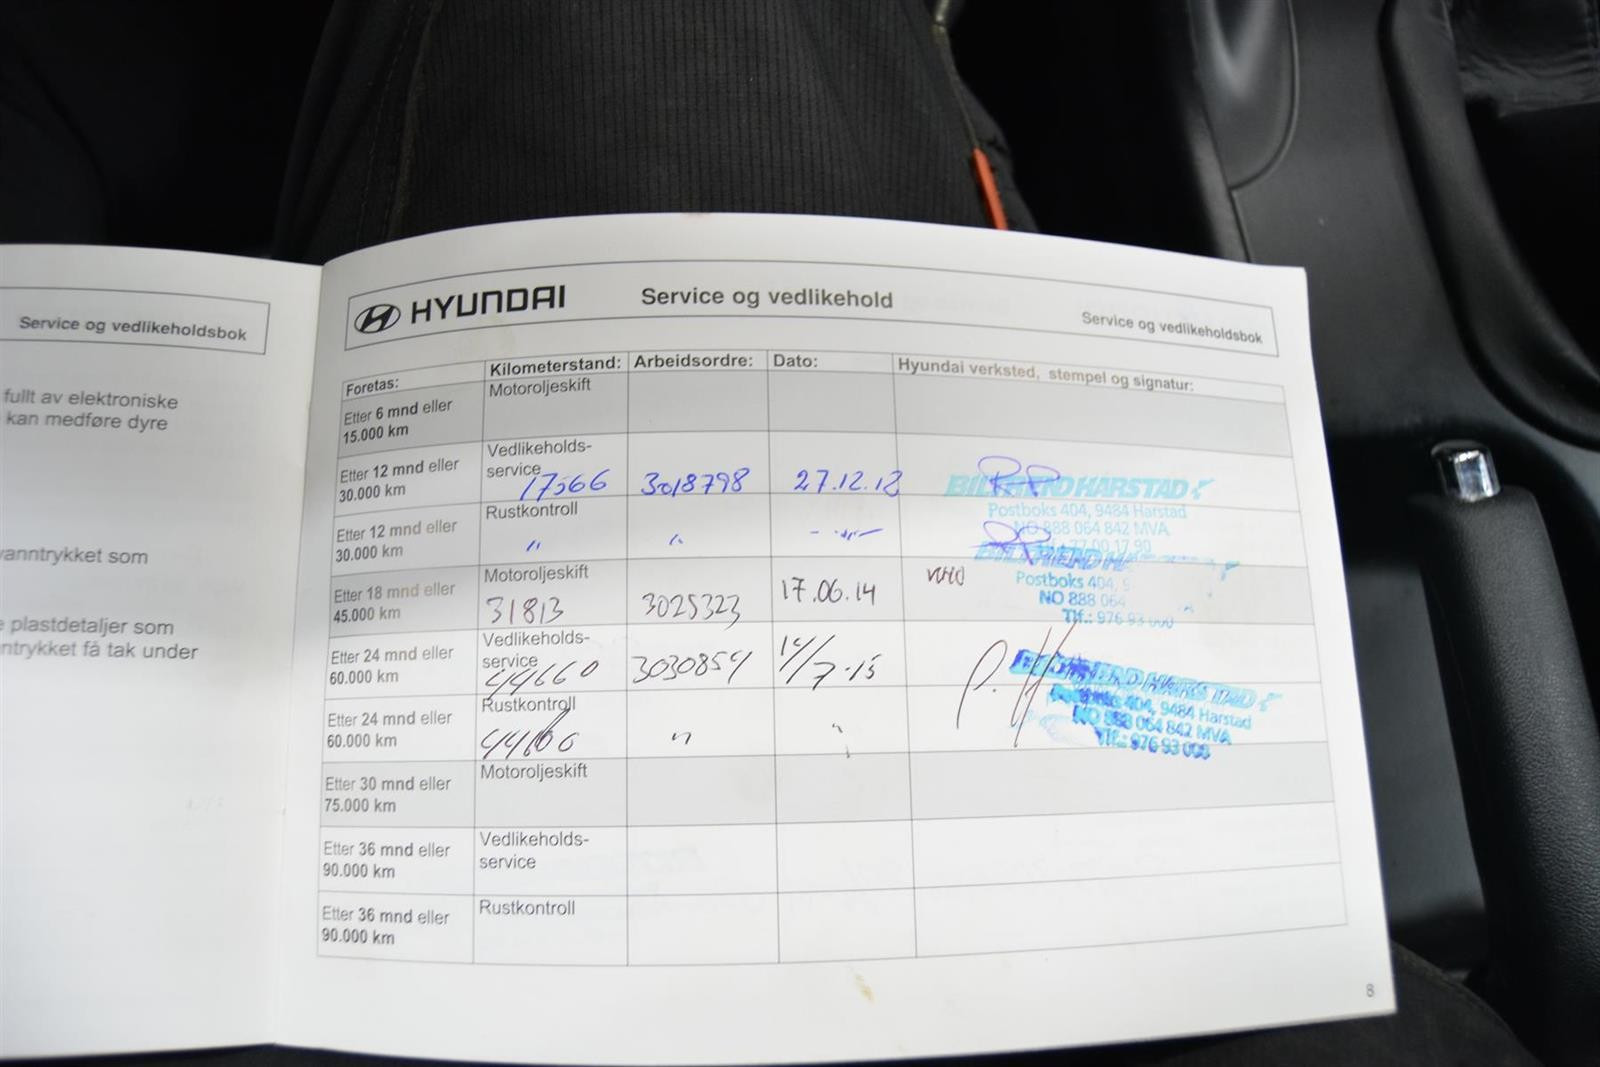 Service og vedlikeholdsbok
fullt av elektroniske
kan medføre dyre
vanntrykket som
plastdetaljer som
ntrykket få tak under
HYUNDAI
Service og vedlikehold
Service og vedlikeholdsbok
Foretas: Kilometerstand: Arbeidsordre: Dato: Hyundai verksted, stempel og signatur:
Etter 6 mnd eller
15.000 km
Motoroljeskift
Etter 12 mnd eller
30.000 km
Vedlikeholds-
service
17566 3018798 27.12.12
BILTREND HARSTAD
Postboks 404, 9484 Harstad
NO 888 064 842 MVA
77 00 17 90
Etter 12 mnd eller
30.000 km
Rustkontroll
" " - " -
Etter 18 mnd eller
45.000 km
Motoroljeskift
31813 3025323 17.06.14
Postboks 404, 9
NO 888 064
Tlf.: 976 93 000
Etter 24 mnd eller
60.000 km
Vedlikeholds-
service
44660 3030854 14/7-15
BILTREND HARSTAD
Postboks 404, 9484 Harstad
NO 888 064 842 MVA
Tlf.: 976 93 000
Etter 24 mnd eller
60.000 km
Rustkontroll
44660 " "
Etter 30 mnd eller
75.000 km
Motoroljeskift
Etter 36 mnd eller
90.000 km
Vedlikeholds-
service
Etter 36 mnd eller
90.000 km
Rustkontroll
8